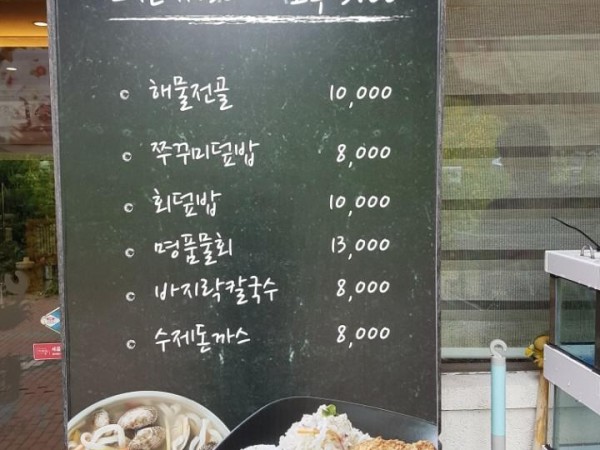 해물전골 10,000
쭈꾸미덮밥 8,000
회덮밥 10,000
명품물회 13,000
바지락칼국수 8,000
수제돈까스 8,000